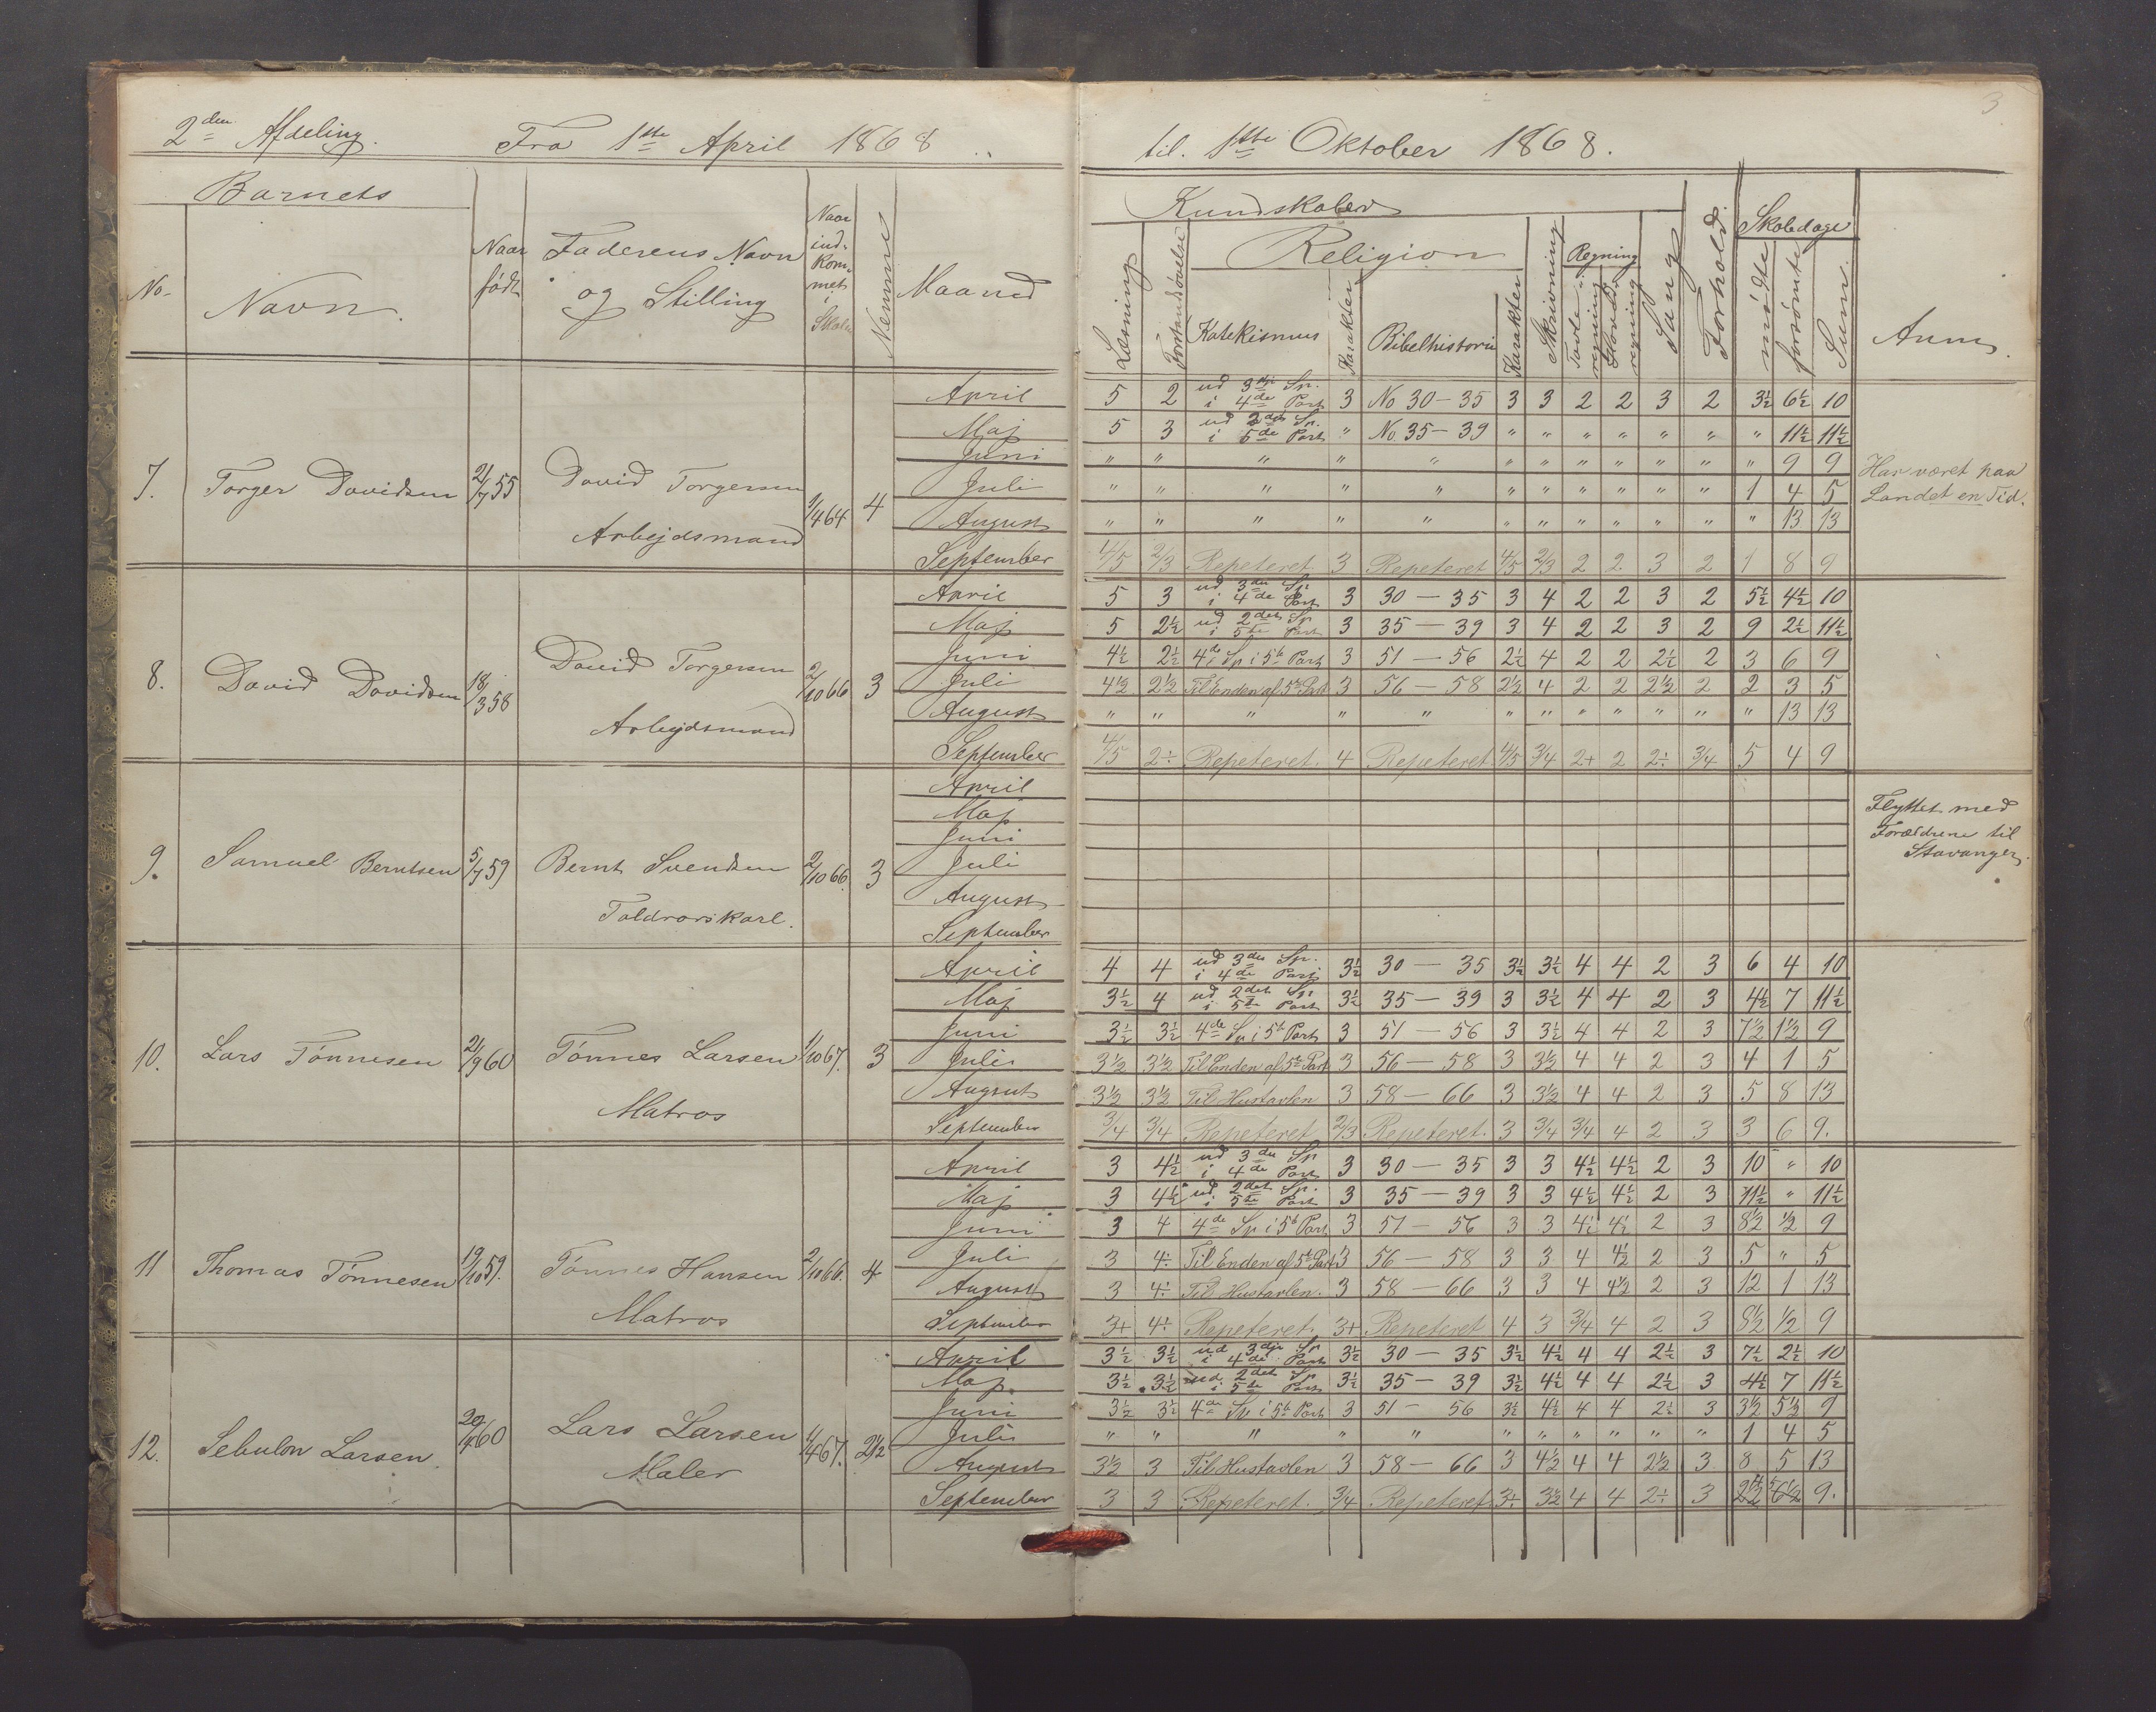 3
2den Afdeling. Fra 1ste April 1868 til 1ste Oktober 1868.
Barnets
No. Navn. Naar født Faderens Navn og Stilling Naar indkommet i Skolen Nemme Maaned
Kundskaber
Læsning Forstandsøvelse Religion Katekismus Karakter Bibelhistorie Karakter Skrivning Regning Tavleregning Hovedregning Sang Forhold. Skoledage mødte forsømte Sum. Anm.
7. Torger Davidsen 21/7 55 David Torgersen Arbejdsmand 1/4 64 4
April 5 2 ud 3die Sp. i 4de Part 3 No 30 – 35 3 3 2 2 3 2 3½ 6½ 10
Maj 5 3 ud 2det Sp. i 5te Part " No. 35 – 39 " " " " " " " 11½ 11½
Juni " " " " " " " " " " " " 9 9
Juli " " " " " " " " " " " 1 4 5
August " " " " " " " " " " " " 13 13
September 4/5 2/3 Repeteret 3 Repeteret 4/5 2/3 2 2 3 2 1 8 9
Har været paa
Landet en Tid.
8. David Davidsen 18/3 58 David Torgersen Arbejdsmand 2/10 66 3
April 5 3 ud 3die Sp i 4de Part 3 30 – 35 3 4 2 2 3 2 5½ 4½ 10
Maj 5 2½ ud 2det Sp i 5te Part 3 35 – 39 3 4 2 2 3 2 9 2½ 11½
Juni 4½ 2½ 4de Sp i 5te Part 3 51 – 56 2½ 4 2 2 2½ 2 3 6 9
Juli 4½ 2½ Til Enden af 5te Part 3 56 – 58 2½ 4 2 2 2½ 2 2 3 5
August " " " " " " " " " " " " 13 13
September 4/5 2÷ Repeteret. 4 Repeteret 4/5 3/4 2+ 2 2÷ 3/4 5 4 9
9. Samuel Berntsen 5/7 59 Bernt Svendsen Toldrorskarl. 2/10 66 3
April
Maj
Juni
Juli
August
September
Flyttet med
Forældrene til
Stavanger.
10. Lars Tönnesen 21/9 60 Tönnes Larsen Matros 1/10 67. 3
April 4 4 ud 3die Sp. i 4de Part 3½ 30 – 35 3½ 3½ 4 4 2 3 6 4 10
Maj 3½ 4 ud 2det Sp i 5te Part 3½ 35 – 39 3 3½ 4 4 2 3 4½ 7 11½
Juni 3½ 3½ 4de Sp i 5te Part 3 51 – 56 3 3½ 4 4 2 3 7½ 1½ 9
Juli 3½ 3½ Til Enden af 5te Part 3 56 – 58 3 3½ 4 4 2 3 4 1 5
August 3½ 3½ Til Hustavlen 3 58 – 66 3 3½ 4 4 2 3 5 8 13
September 3/4 3/4 Repeteret 2/3 Repeteret. 3 3/4 3/4 4 2 3 3 6 9.
11 Thomas Tönnesen 19/10 59. Tönnes Hansen Matros 2/10 66. 4
April 3 4½ ud 3die Sp i 4de Part 3 30 – 35 3 3 4½ 4½ 2 3 10 " 10
Maj 3 4½ ud 2det Sp. i 5te Part 3 35 – 39 3 3 4½ 4½ 2 3 11½ " 11½
Juni 3 4 4de Sp i 5te Part 3 51 – 56 3 3 4½ 4½ 2 3 8½ ½ 9
Juli 3 4÷ Til Enden af 5te Part 3 56 – 58 3 3 4 4½ 2 3 5 " 5
August 3 4÷ Til Hustavlen. 3 58 – 66 3 3 4 4½ 2 3 12 1 13
September 3+ 4÷ Repeteret 3+ Repeteret 4 3 3/4 4 2 3 8½ ½ 9
12. Sebulon Larsen. 60 Lars Larsen Maler 1/4 67. 2½
April 3½ 3½ ud 3die Sp i 4de Part 3½ 30 – 35 3½ 4½ 4 4 2½ 3 7½ 2½ 10
Maj 3½ 3½ ud 2det Sp i 5te Part 3½ 35 – 39 3½ 4½ 4 4 2½ 3 4½ 7 11½
Juni 3½ 3½ 4de Sp i 5te Part 3 51 – 56 3½ 4½ 4 4 2½ 3 3½ 5½ 9
Juli " " " " " " " " " " " 1 4 5
August 3½ 3 Til Hustavlen 3 58 – 66 3 4½ 4 4 2½ 3 8 5 13
September 3 3 Repeteret. 3/4 Repeteret 3÷ 3½ 4 4 2÷ 3 9.